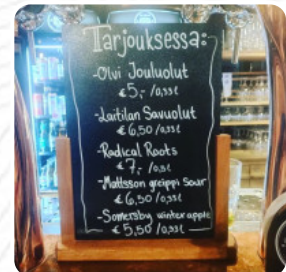 Tarjouksessa:
-Olvi Jouluolut
€5,- /0,33l
-Laitilan Savuolut
€6,50 /0,33l
-Radical Roots
€7,- /0,5l
-Mattsson greippi Sour
€6,50 /0,33l
-Somersby winter apple
€5,50 /0,33l